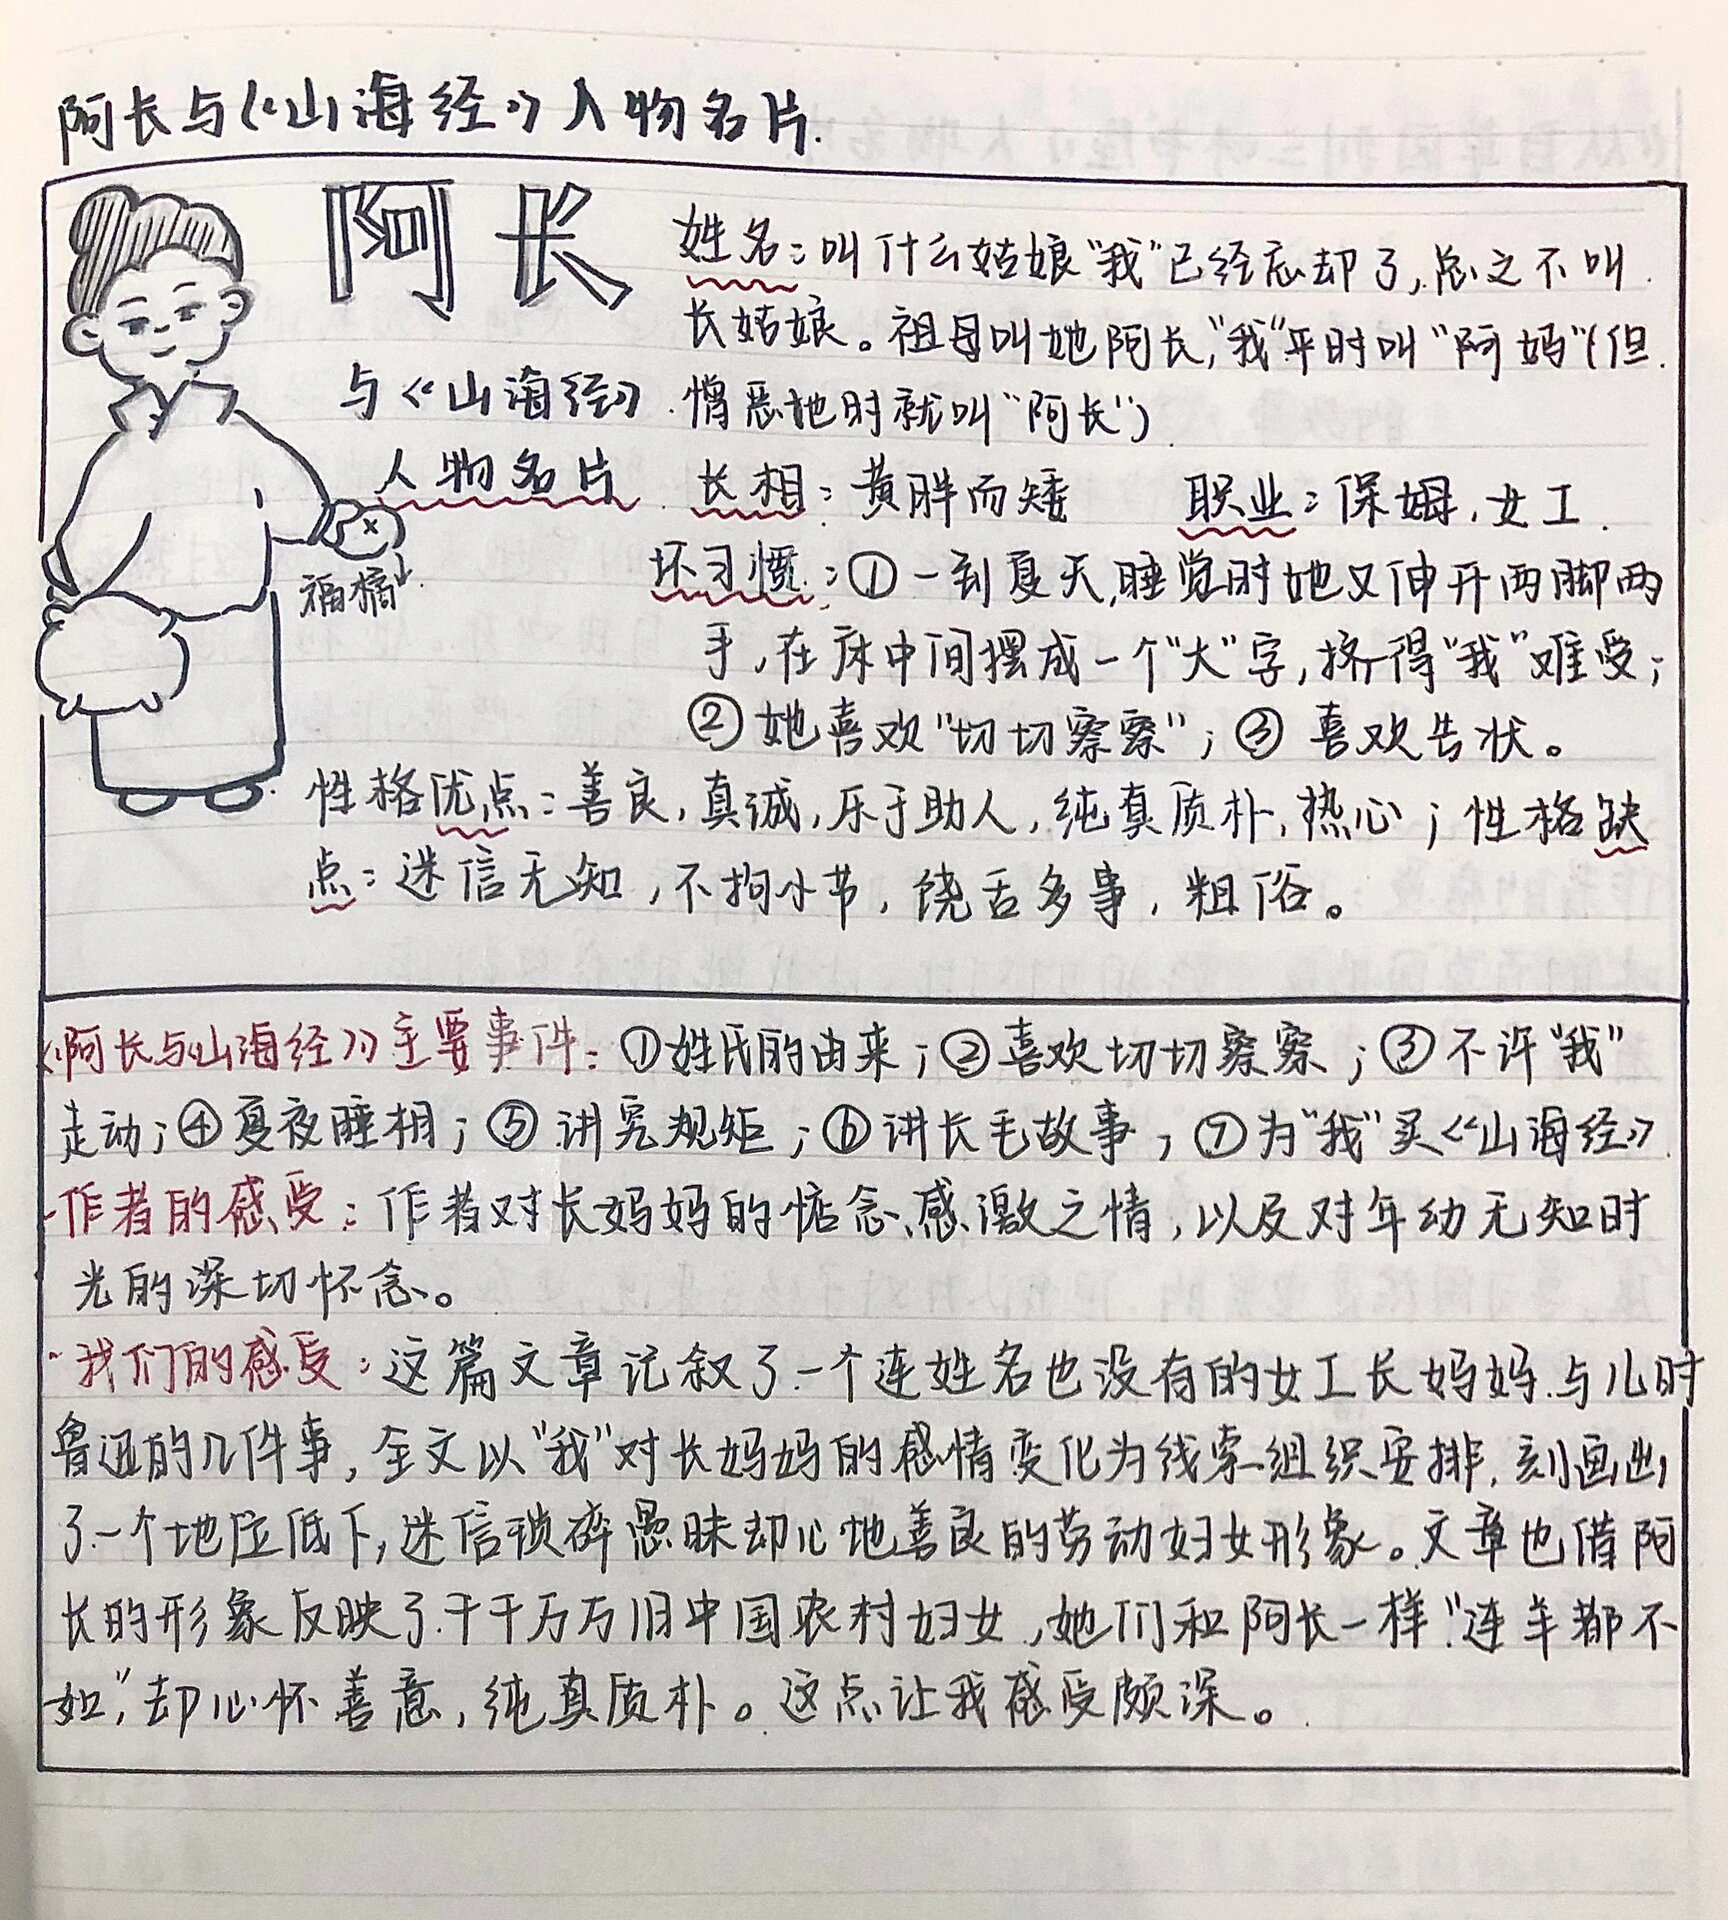 阿长与《山海经》人物名片.
阿长
与《山海经》
人物名片
福橘
姓名：叫什么姑娘“我”已经忘却了，总之不叫
长姑娘。祖母叫她阿长，“我”平时叫“阿妈”（但
憎恶她时就叫“阿长”）
长相：黄胖而矮 职业：保姆，女工.
坏习惯：①一到夏天，睡觉时她又伸开两脚两
手，在床中间摆成一个“大”字，挤得“我”难受；
②她喜欢“切切察察”；③喜欢告状。
性格优点：善良，真诚，乐于助人，纯真质朴，热心；性格缺
点：迷信无知，不拘小节，饶舌多事，粗俗。
《阿长与《山海经》》主要事件：①姓氏的由来；②喜欢切切察察；③不许“我”
走动；④夏夜睡相；⑤讲究规矩；⑥讲长毛故事；⑦为“我”买《山海经》.
·作者的感受：作者对长妈妈的惦念、感激之情，以及对年幼无知时
光的深切怀念。
·我们的感受：这篇文章记叙了一个连姓名也没有的女工长妈妈与儿时
鲁迅的几件事，全文以“我”对长妈妈的感情变化为线索组织安排，刻画出
了一个地位低下，迷信琐碎愚昧却心地善良的劳动妇女形象。文章也借阿
长的形象反映了千千万万旧中国农村妇女，她们和阿长一样“连羊都不
如”，却心怀善意，纯真质朴。这点让我感受颇深。